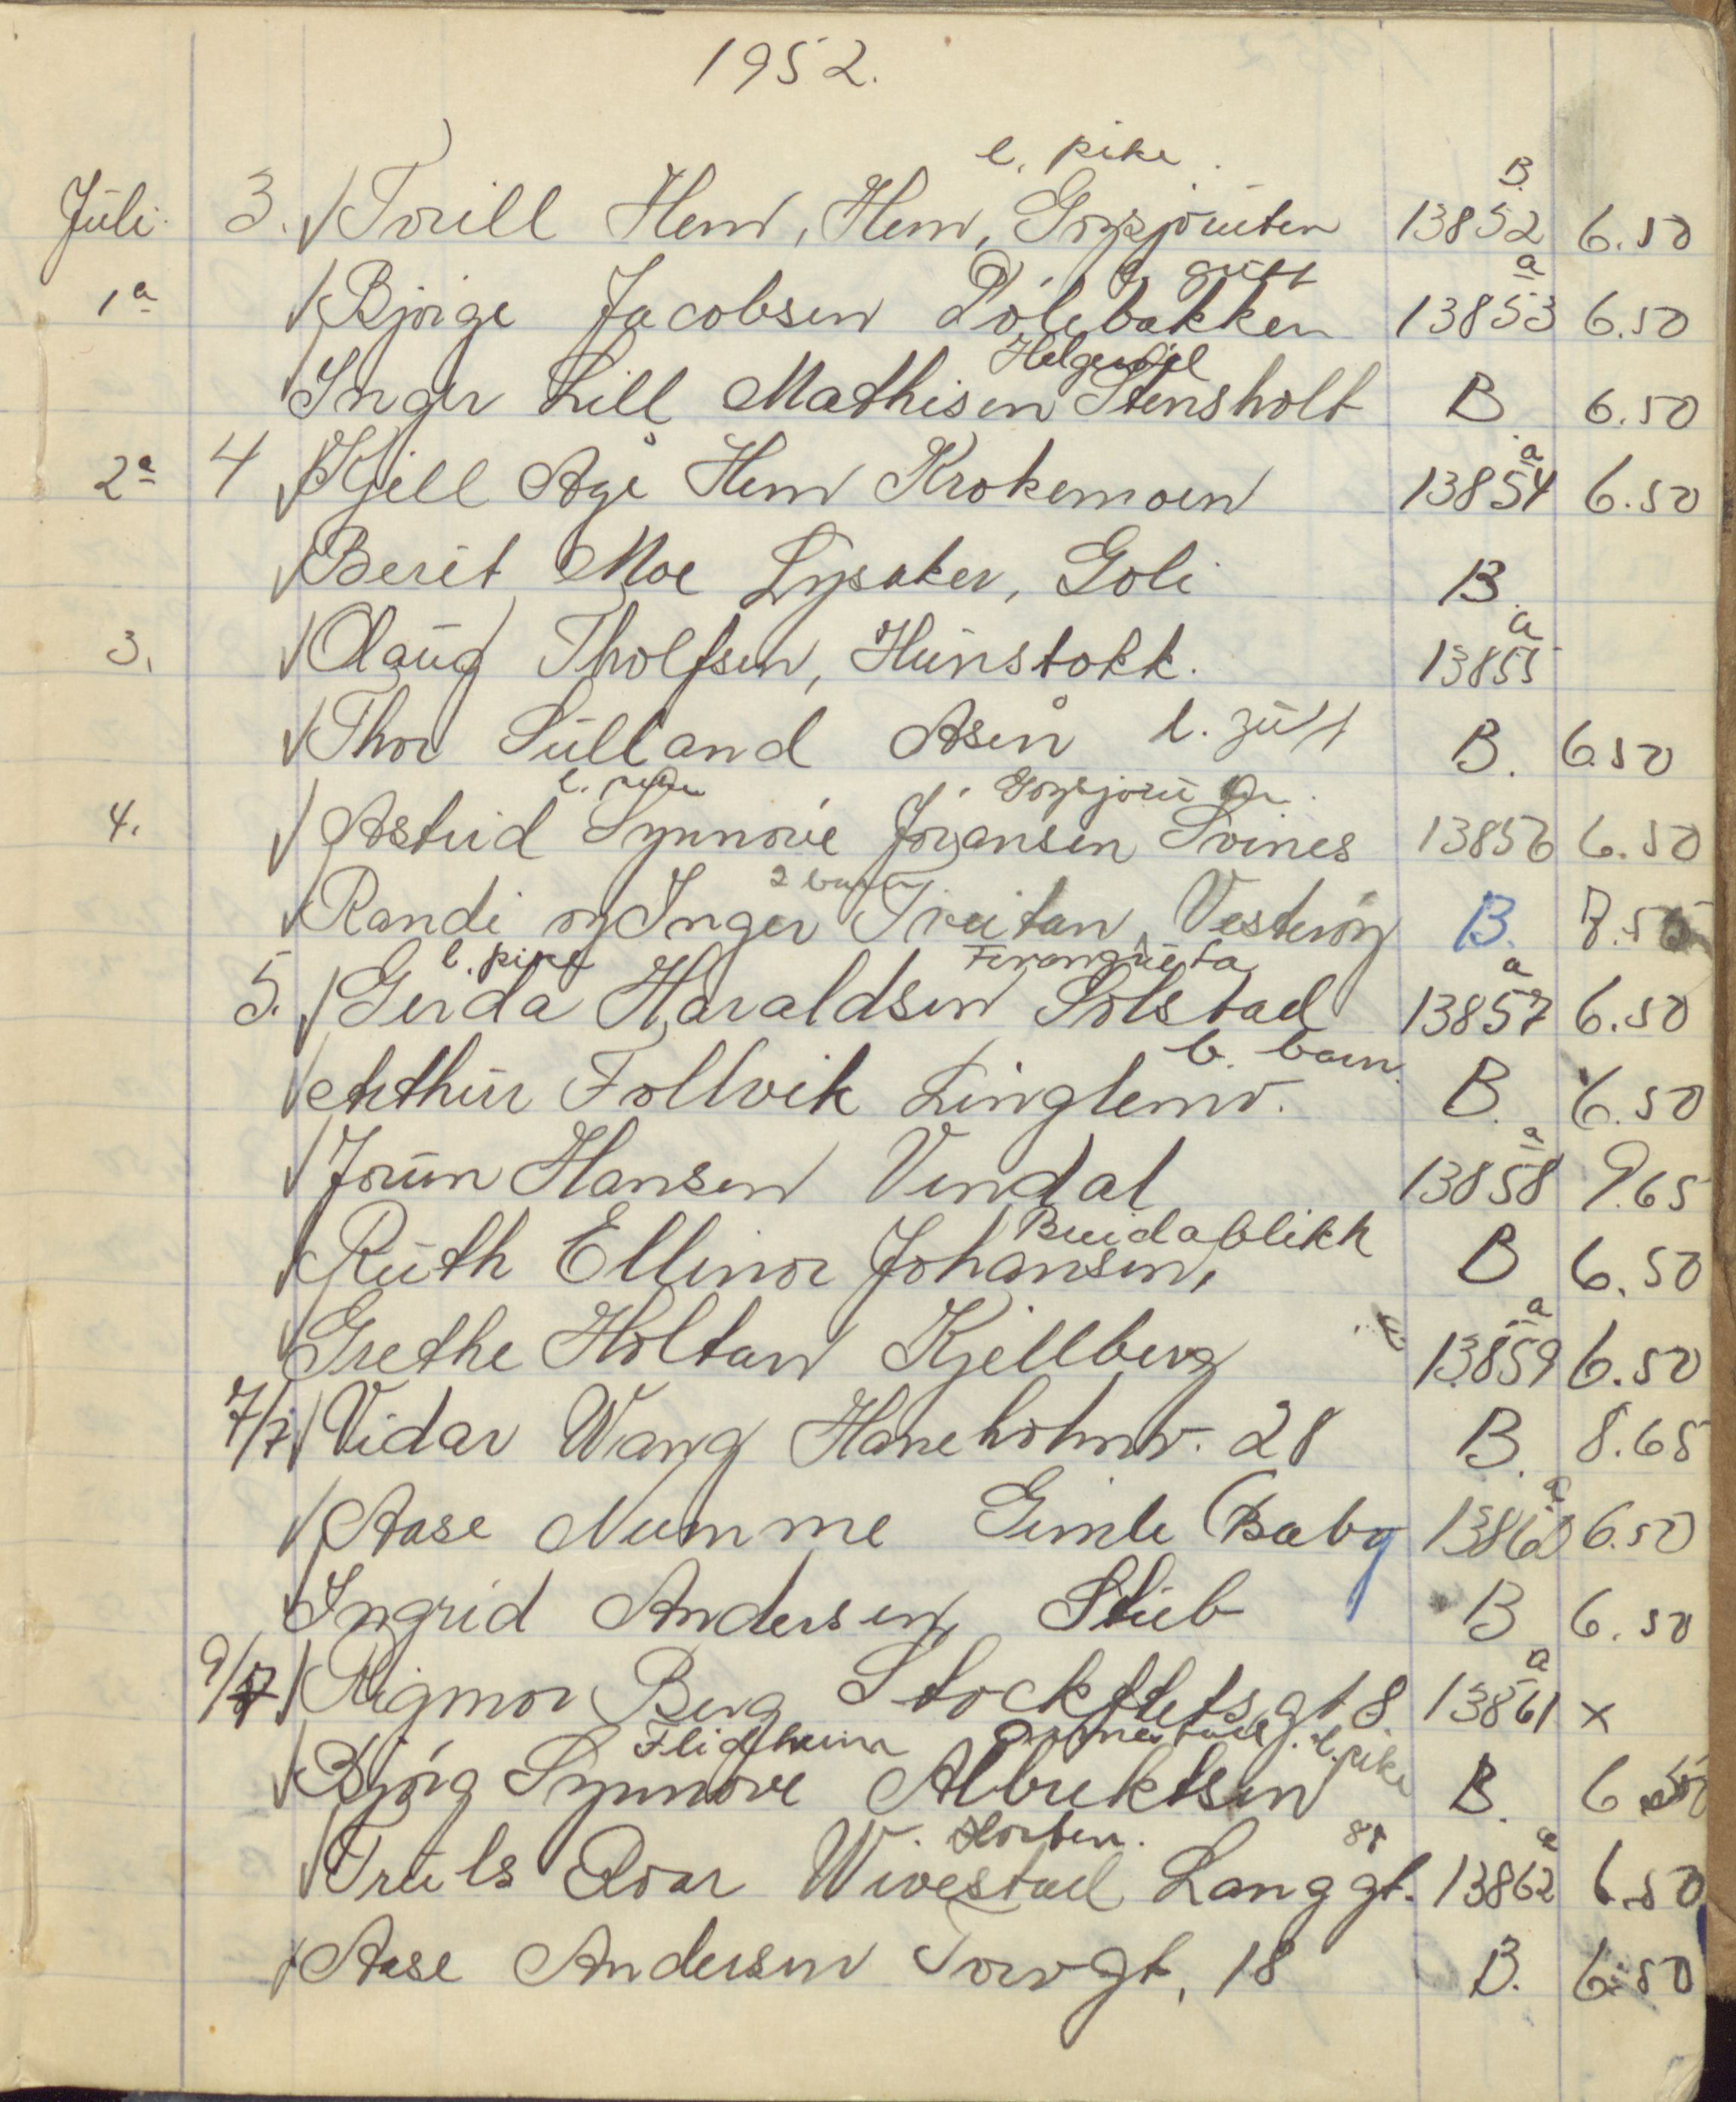 1952.
l. pike.
Juli 3. Torill Hem, Hem, Gogsjøruten 13852 B. 6.50
l. gutt
1a Bjørge Jacobsen Dölebakken 13853 a 6.50
Helgerød
Inger Lill Mathisen Stensholt B 6.50
2a 4 Kjell Åge Hem Krokemoen 13854 a 6.50
Berit Moe Lysaker, Goli B.
3. Olaug Tholfsen, Hunstokk. 13855 a
Thor Sulland Åsen l. gutt B. 6.50
Gogsjøru
4. Astrid Synnøve Jørgansen Svines 13856 6.50
2 barn
Randi og Inger Treitan, Vesterøy B. 8.50
l. pike
5. Gerda Haraldsen Solstad 13857 a 6.50
b. barn.
Arthur Follvik Linglemv. B. 6.50
Jorun Hansen Vendal 13858 a 9.65
Breidablikk
Ruth Ellinor Johansen, B 6.50
Grethe Holtan Kjellberg 13859 a 6.50
7/7 Vidar Wang Haneholmv. 28 B. 8.65
Aase Numme Gimle (Baby 13860 a 6.50
Ingrid Andersen, Stub B 6.50
9/7 Rigmor Berg Stockfletsgt 8. 13861 a x
l. pike
Bjørg Synnøve Albrektsen B. 6.50
Horten. 81
Truls Roar Wivestad Langgt. 13862 a 6.50
Aase Andersen Torvgt, 18 B. 6.50